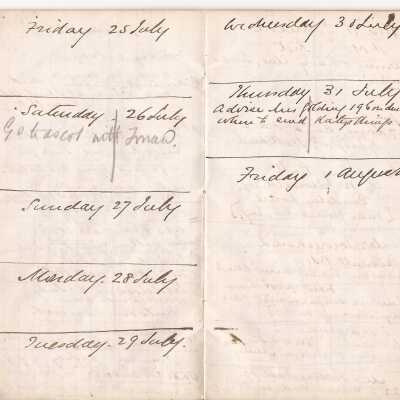 Friday 25 July
Saturday 26 July
Go to ascot with
Sunday 27 July
Monday. 28 July
Tuesday. 29 July.
Wednesday 30 July
Thursday 31 July
Advise Mrs 19 London
where to send Katys things.
Friday 1 August